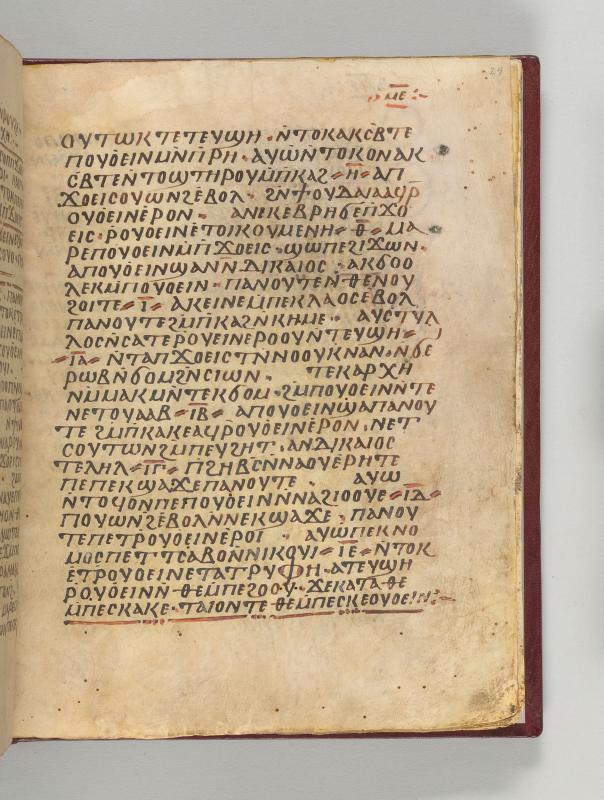 24
ⲘⲈ
ⲞⲨⲦⲰⲔ ⲦⲈ ⲦⲈⲨϢⲎ · ⲚⲦⲞⲔ ⲀⲔⲤⲂⲦⲈ
ⲠⲞⲨⲞⲈⲒⲚ ⲘⲚ ⲠⲢⲎ · ⲀⲨⲰ ⲚⲦⲞⲔ ⲞⲚ ⲀⲔ
ⲤⲂⲦⲈ ⲚⲦⲞϢ ⲦⲎⲢⲞⲨ ⲘⲠⲔⲀϨ · Ⲏ · ⲀⲠ
ϪⲞⲈⲒⲤ ⲞⲨⲰⲚϨ ⲈⲂⲞⲗ · ϨⲚ
ⲞⲨⲞⲈⲒⲚ ⲈⲢⲞⲚ · ⲀⲚⲈⲔⲈⲂⲢⲎϬⲈ ⲠϪⲞ
ⲈⲒⲤ · ⲢⲞⲨⲞⲈⲒⲚ ⲈⲦⲞⲒⲔⲞⲨⲘⲈⲚⲎ · Ⲑ · ⲘⲀ
ⲢⲈ ⲠⲞⲨⲞⲈⲒⲚ ⲘⲠϪⲞⲈⲒⲤ · ϢⲰⲠⲈ ϨⲒϪⲰⲚ ·
ⲀⲠⲞⲨⲞⲈⲒⲚ ϢⲀ ⲚⲚⲆⲒⲔⲀⲒⲞⲤ · ⲀⲔϬⲞⲞ
ⲖⲈⲔ ⲘⲠⲞⲨⲞⲈⲒⲚ · ⲠⲀⲚⲞⲨⲦⲈ ⲚⲐⲈ ⲚⲞⲨ
ϨⲞⲒⲦⲈ · Ⲓ · ⲀⲔⲈⲒⲚⲈ ⲘⲠⲈⲔⲖⲀⲞⲤ ⲈⲂⲞⲖ
ⲠⲀⲚⲞⲨⲦⲈ ϨⲘ ⲠⲔⲀϨ ⲚⲔⲎⲘⲈ · ⲀⲨⲤⲦⲨⲖ
ⲖⲞⲤ ⲚⲤⲀⲦⲈ ⲢⲞⲨⲈⲒⲚ ⲈⲢⲞⲞⲨ ⲚⲦⲈⲨϢⲎ ·
ⲒⲀ · ⲚⲦⲀ ⲠϪⲞⲈⲒⲤ ⲦⲚⲚⲞⲞⲨⲔ ⲚⲀⲚ · ⲚϬⲈ
ⲢⲰⲂ ⲚϬⲞⲘ ϨⲚ ⲤⲒⲰⲚ · ⲦⲈⲔⲀⲢⲬⲎ
ⲚⲘⲘⲀⲔ ⲘⲚ ⲦⲈⲔϬⲞⲘ · ϨⲘ ⲠⲞⲨⲞⲈⲒⲚ ⲚⲦⲈ
ⲚⲈⲦⲞⲨⲀⲀⲂ · ⲒⲂ · ⲀⲠⲞⲨⲞⲈⲒⲚ ϢⲀ ⲠⲀⲚⲞⲨ
ⲦⲈ ϨⲘ ⲠⲔⲀⲔⲈ ⲀϤⲢⲞⲨⲞⲈⲒⲚ ⲈⲢⲞⲚ · ⲚⲈⲦ
ⲤⲞⲨⲦⲰⲚ ϨⲘ ⲠⲈⲨϨⲎⲦ · ⲀⲚⲆⲒⲔⲀⲒⲞⲤ
ⲦⲈⲖⲎⲖ · ⲒⲄ · ⲠϨⲎⲂⲤ ⲚⲚⲀⲞⲨⲈⲢⲎⲦⲈ
ⲠⲈ ⲠⲈⲔϢⲀϪⲈ ⲠⲀⲚⲞⲨⲦⲈ · ⲀⲨⲰ
ⲚⲦⲞϤ ⲞⲚ ⲠⲈ ⲠⲞⲨⲞⲈⲒⲚ ⲚⲚⲀϨⲒⲞⲞⲨⲈ · ⲒⲆ ·
ⲠⲞⲨⲰⲚϨ ⲈⲂⲞⲖ ⲚⲚⲈⲔϢⲀϪⲈ · ⲠⲀⲚⲞⲨ
ⲦⲈ ⲠⲈⲦⲢⲞⲨⲞⲈⲒⲚ ⲈⲢⲞⲒ · ⲀⲨⲰ ⲠⲈⲔⲚⲞ
ⲘⲞⲤ ⲠⲈⲦⲦⲤⲀⲂⲞ ⲚⲚⲒⲔⲞⲨⲒ · ⲒⲈ · ⲚⲦⲞⲔ
ⲈⲦⲢⲞⲨⲞⲈⲒⲚ ⲈⲦⲀⲦⲢⲨⲪⲎ · ⲀⲦⲈⲨϢⲎ
ⲢⲞⲨⲞⲈⲒⲚ ⲚⲐⲈ ⲘⲠⲈϨⲞⲞⲨ · ϪⲈ ⲔⲀⲦⲀ ⲐⲈ
ⲘⲠⲈⲤⲔⲀⲔⲈ · ⲦⲀⲒ ⲞⲚ ⲦⲈ ⲐⲈ ⲘⲠⲈⲤⲔⲈⲞⲨⲞⲈⲒⲚ